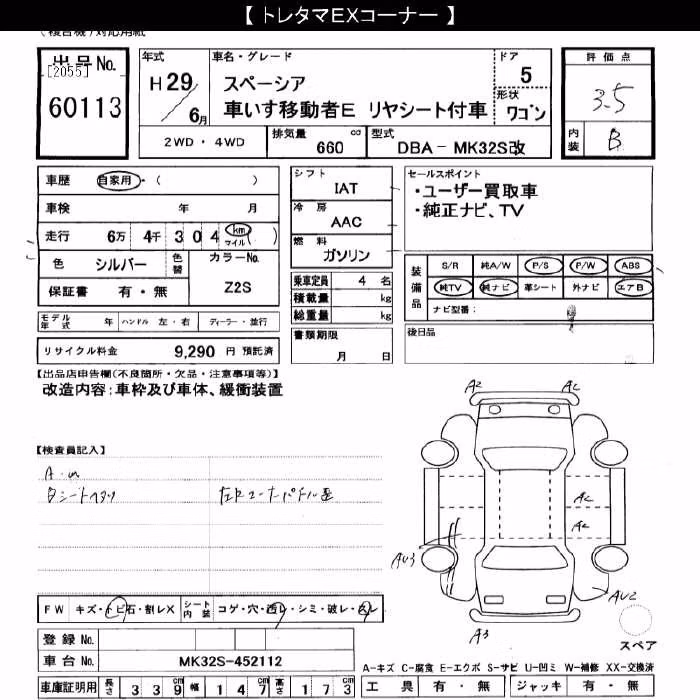 【 トレタマEXコーナー 】
(複合機) 対応用紙
出品No.
[2055]
60113
年式
H 29／6月
車名・グレード
スペーシア
車いす移動者E リヤシート付車
ドア
5
形状
ワゴン
評価点
3.5
内装
B
2WD・4WD
排気量
660 cc
型式
DBA－MK32S改
車歴
自家用・( )
車検 年 月
走行 6万 4千 3 0 4 km マイル ( )
色 シルバー 色替 カラーNo.
Z2S
保証書 有・無
シフト
IAT
冷房
AAC
燃料
ガソリン
乗車定員 4 名
積載量 kg
総重量 kg
書類期限
月 日
セールスポイント
・ユーザー買取車
・純正ナビ、TV
装備品
S/R 純A/W P/S P/W ABS
純TV 純ナビ 革シート 外ナビ エアB
ナビ型番：
後日品
モデル年式 年 ハンドル 左・右 ディーラー・並行
リサイクル料金 9,290 円 預託済
【出品店申告欄(不良箇所・欠品・注意事項等)】
改造内容：車枠及び車体、緩衝装置
【検査員記入】
A2 A2
A2
A2
AU3
AU2
A3
スペア
FW キズ・トビ石・割レX シート内装 コゲ・穴・・シミ・破レ・
登録No.
車台No. MK32S-452112
A-キズ C-腐食 E-エクボ S-サビ U-凹ミ W-補修 XX-交換済
車庫証明用 長さ 3 3 9 cm 幅 1 4 7 cm 高さ 1 7 3 cm
工具 有・無 ジャッキ 有・無